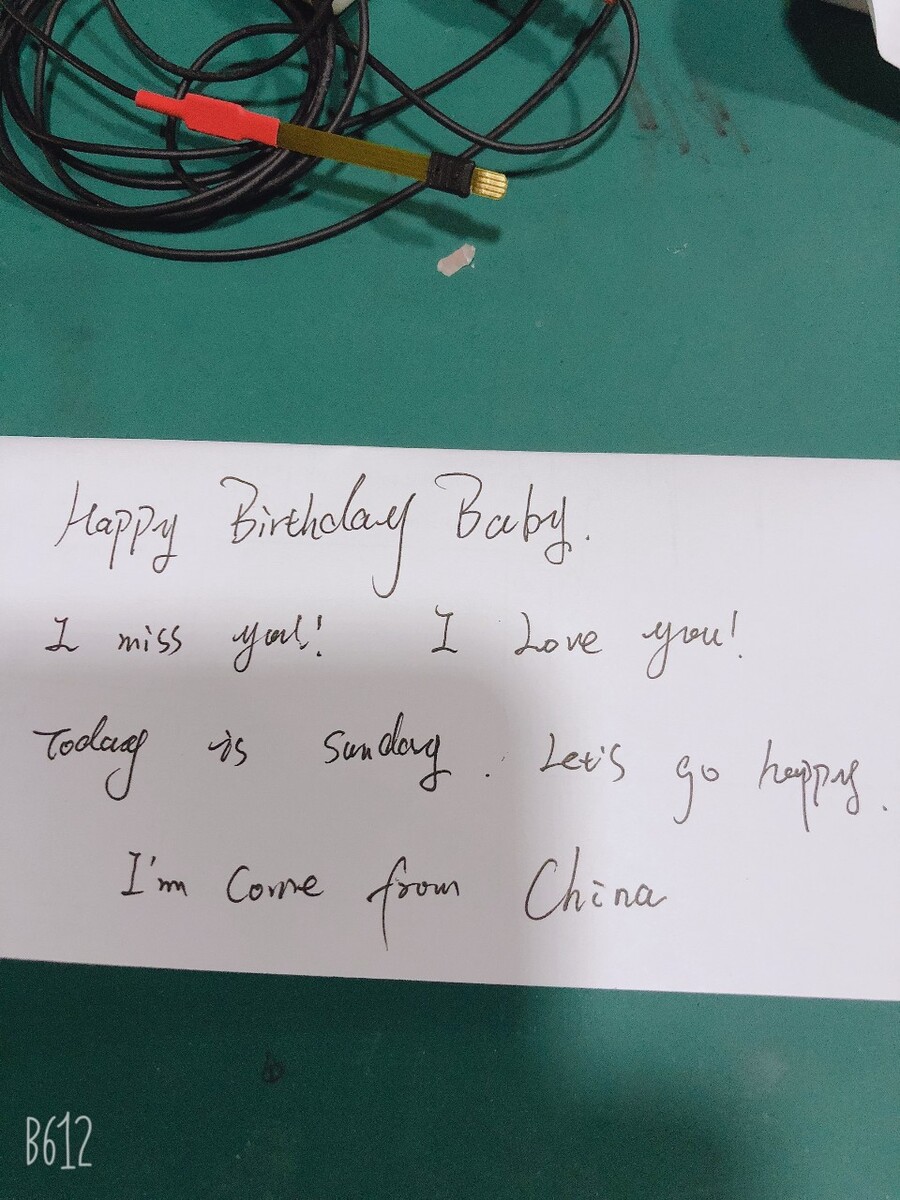 Happy Birthday Baby.
I miss you! I Love you!
Today is Sunday. Let's go happy.
I'm Come from China
B612